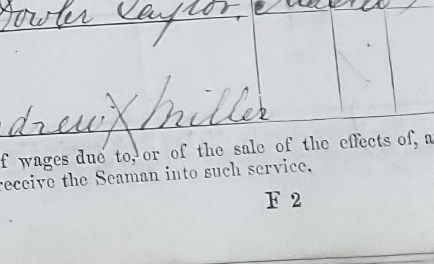 Fowler Taylor.
drew X Miller
f wages due to, or of the sale of the effects of, a
receive the Seaman into such service.
F 2